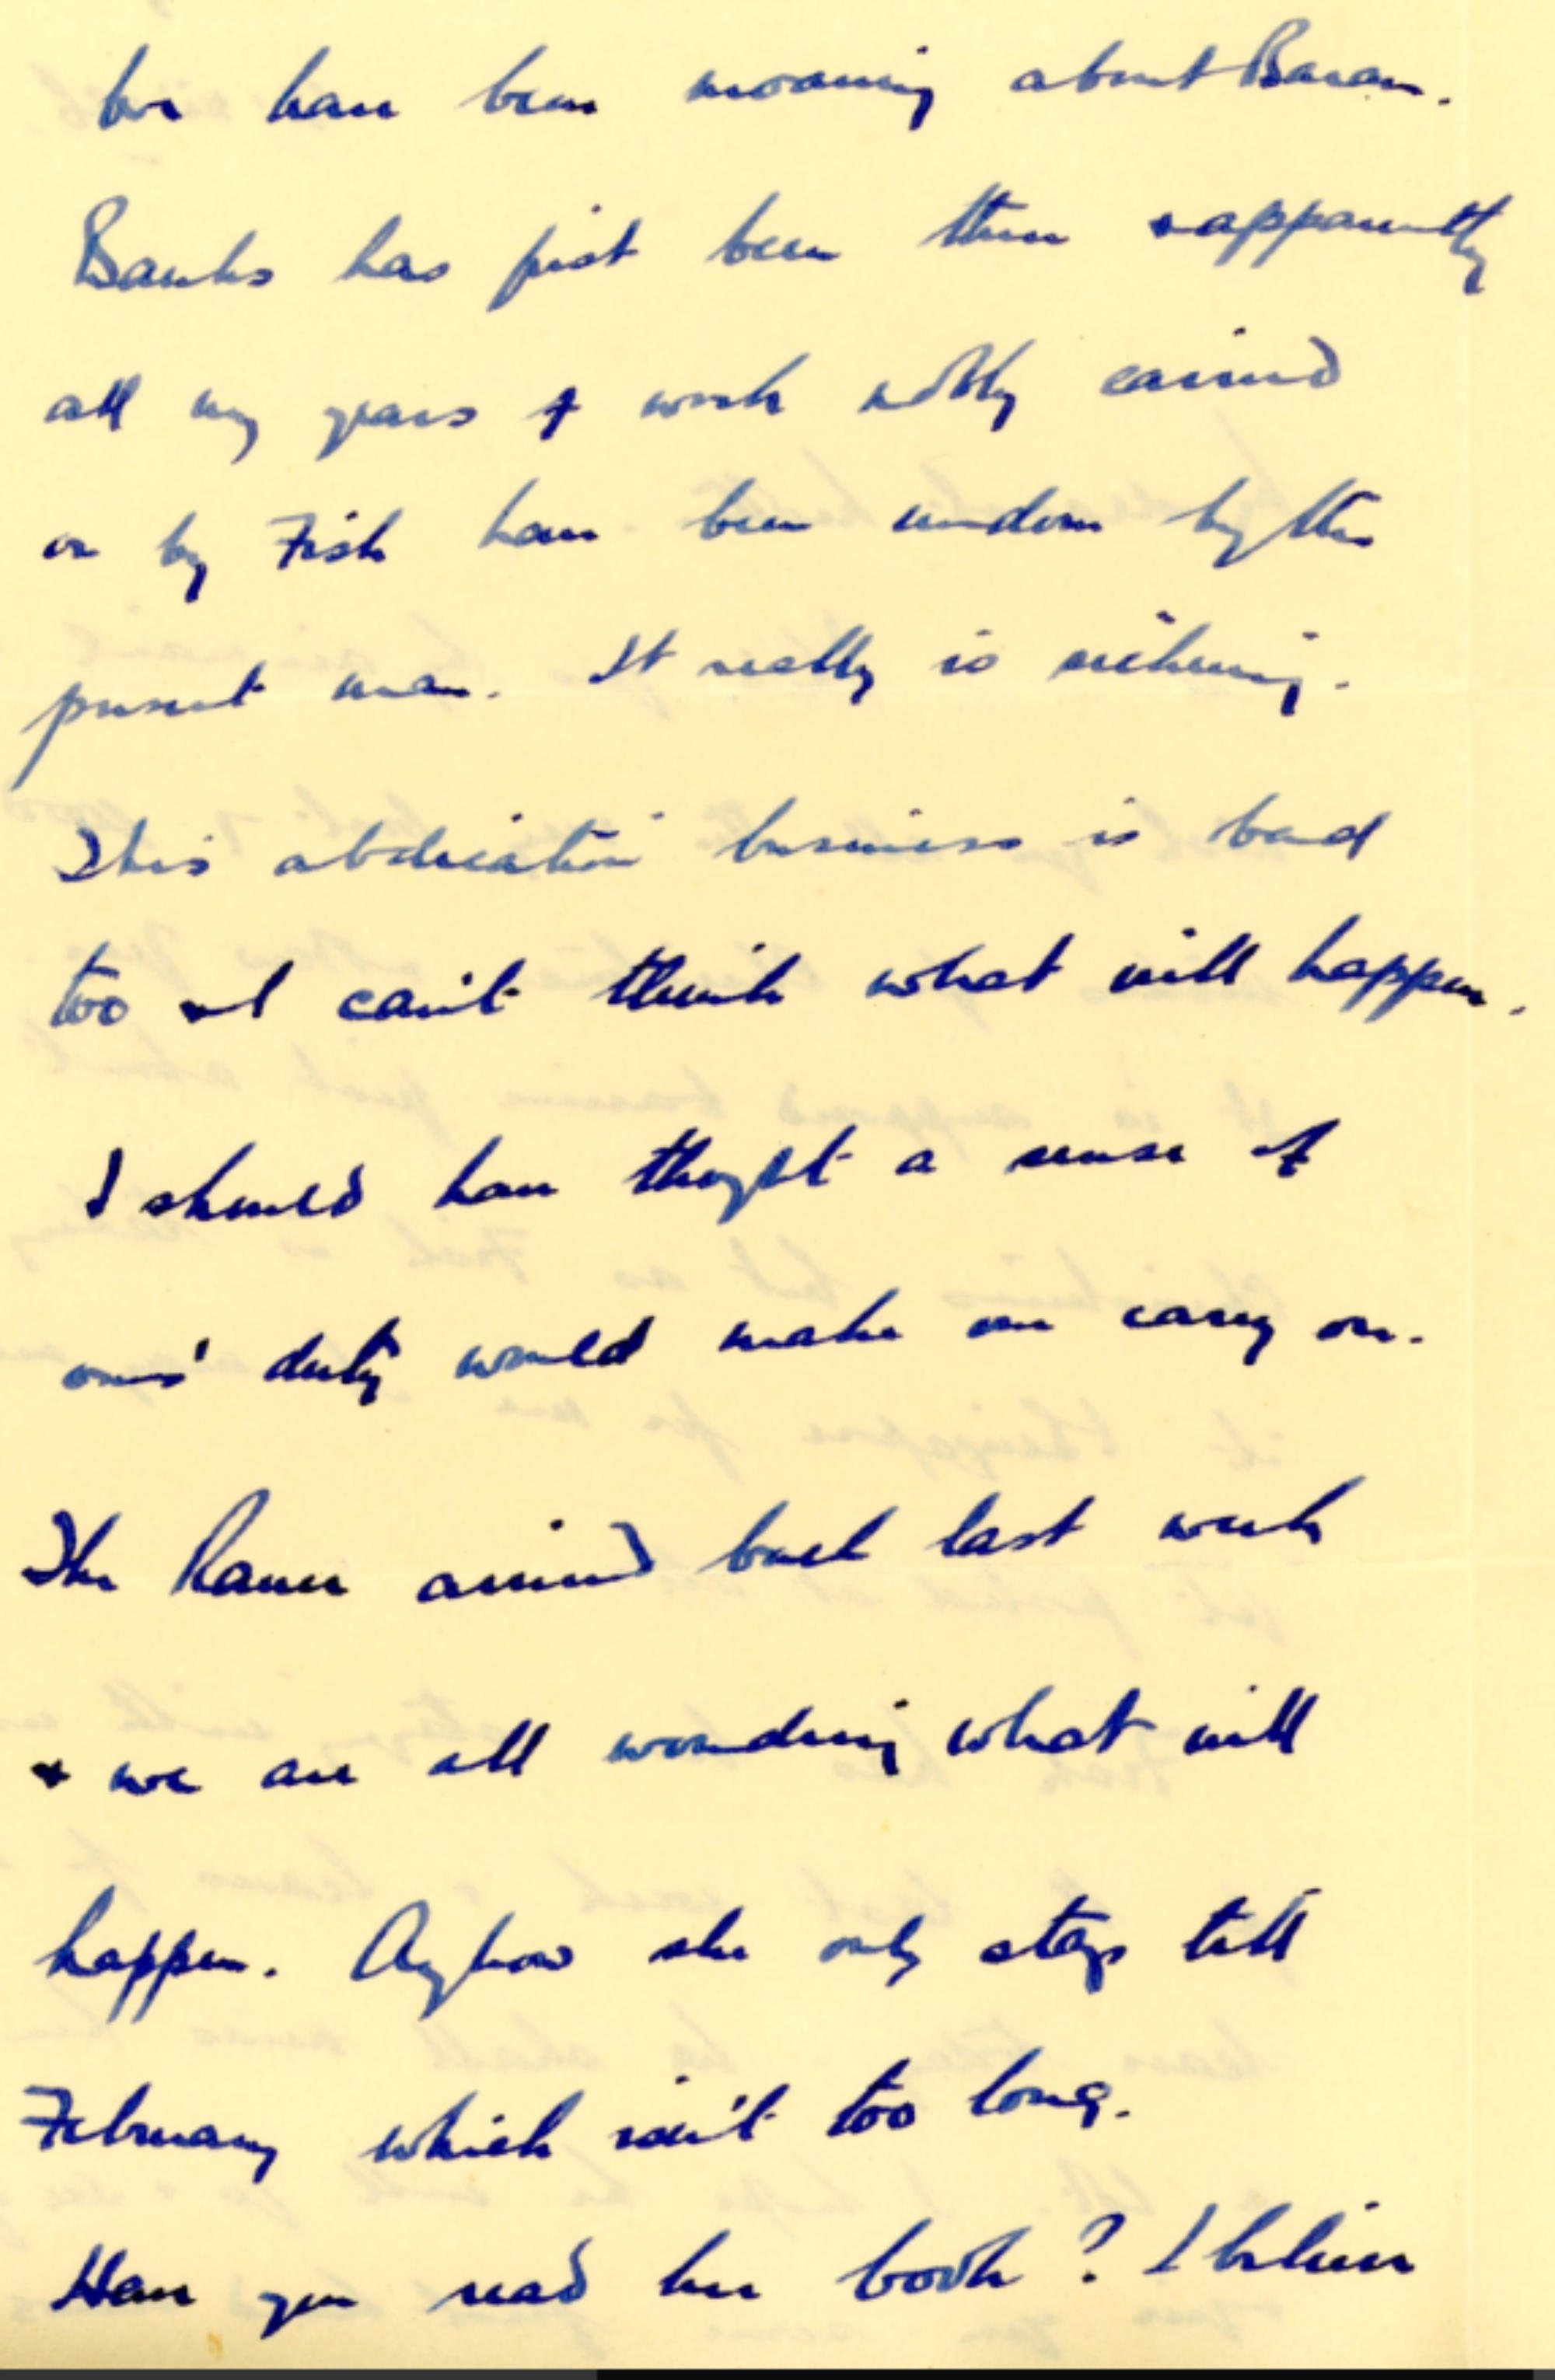 we have been moaning about Baram.
Banks has just been there & apparently
all my years of work nobly carried
on by Fish have been undone by the
present man. It really is sickening.
This abdication business is bad
too & I can't think what will happen.
I should have thought a sense of
ones' duty would make one carry on.
The Ranee arrived back last week
& we are all wondering what will
happen. Anyhow she only stays till
February which isn't too long.
Have you read her book? I believe